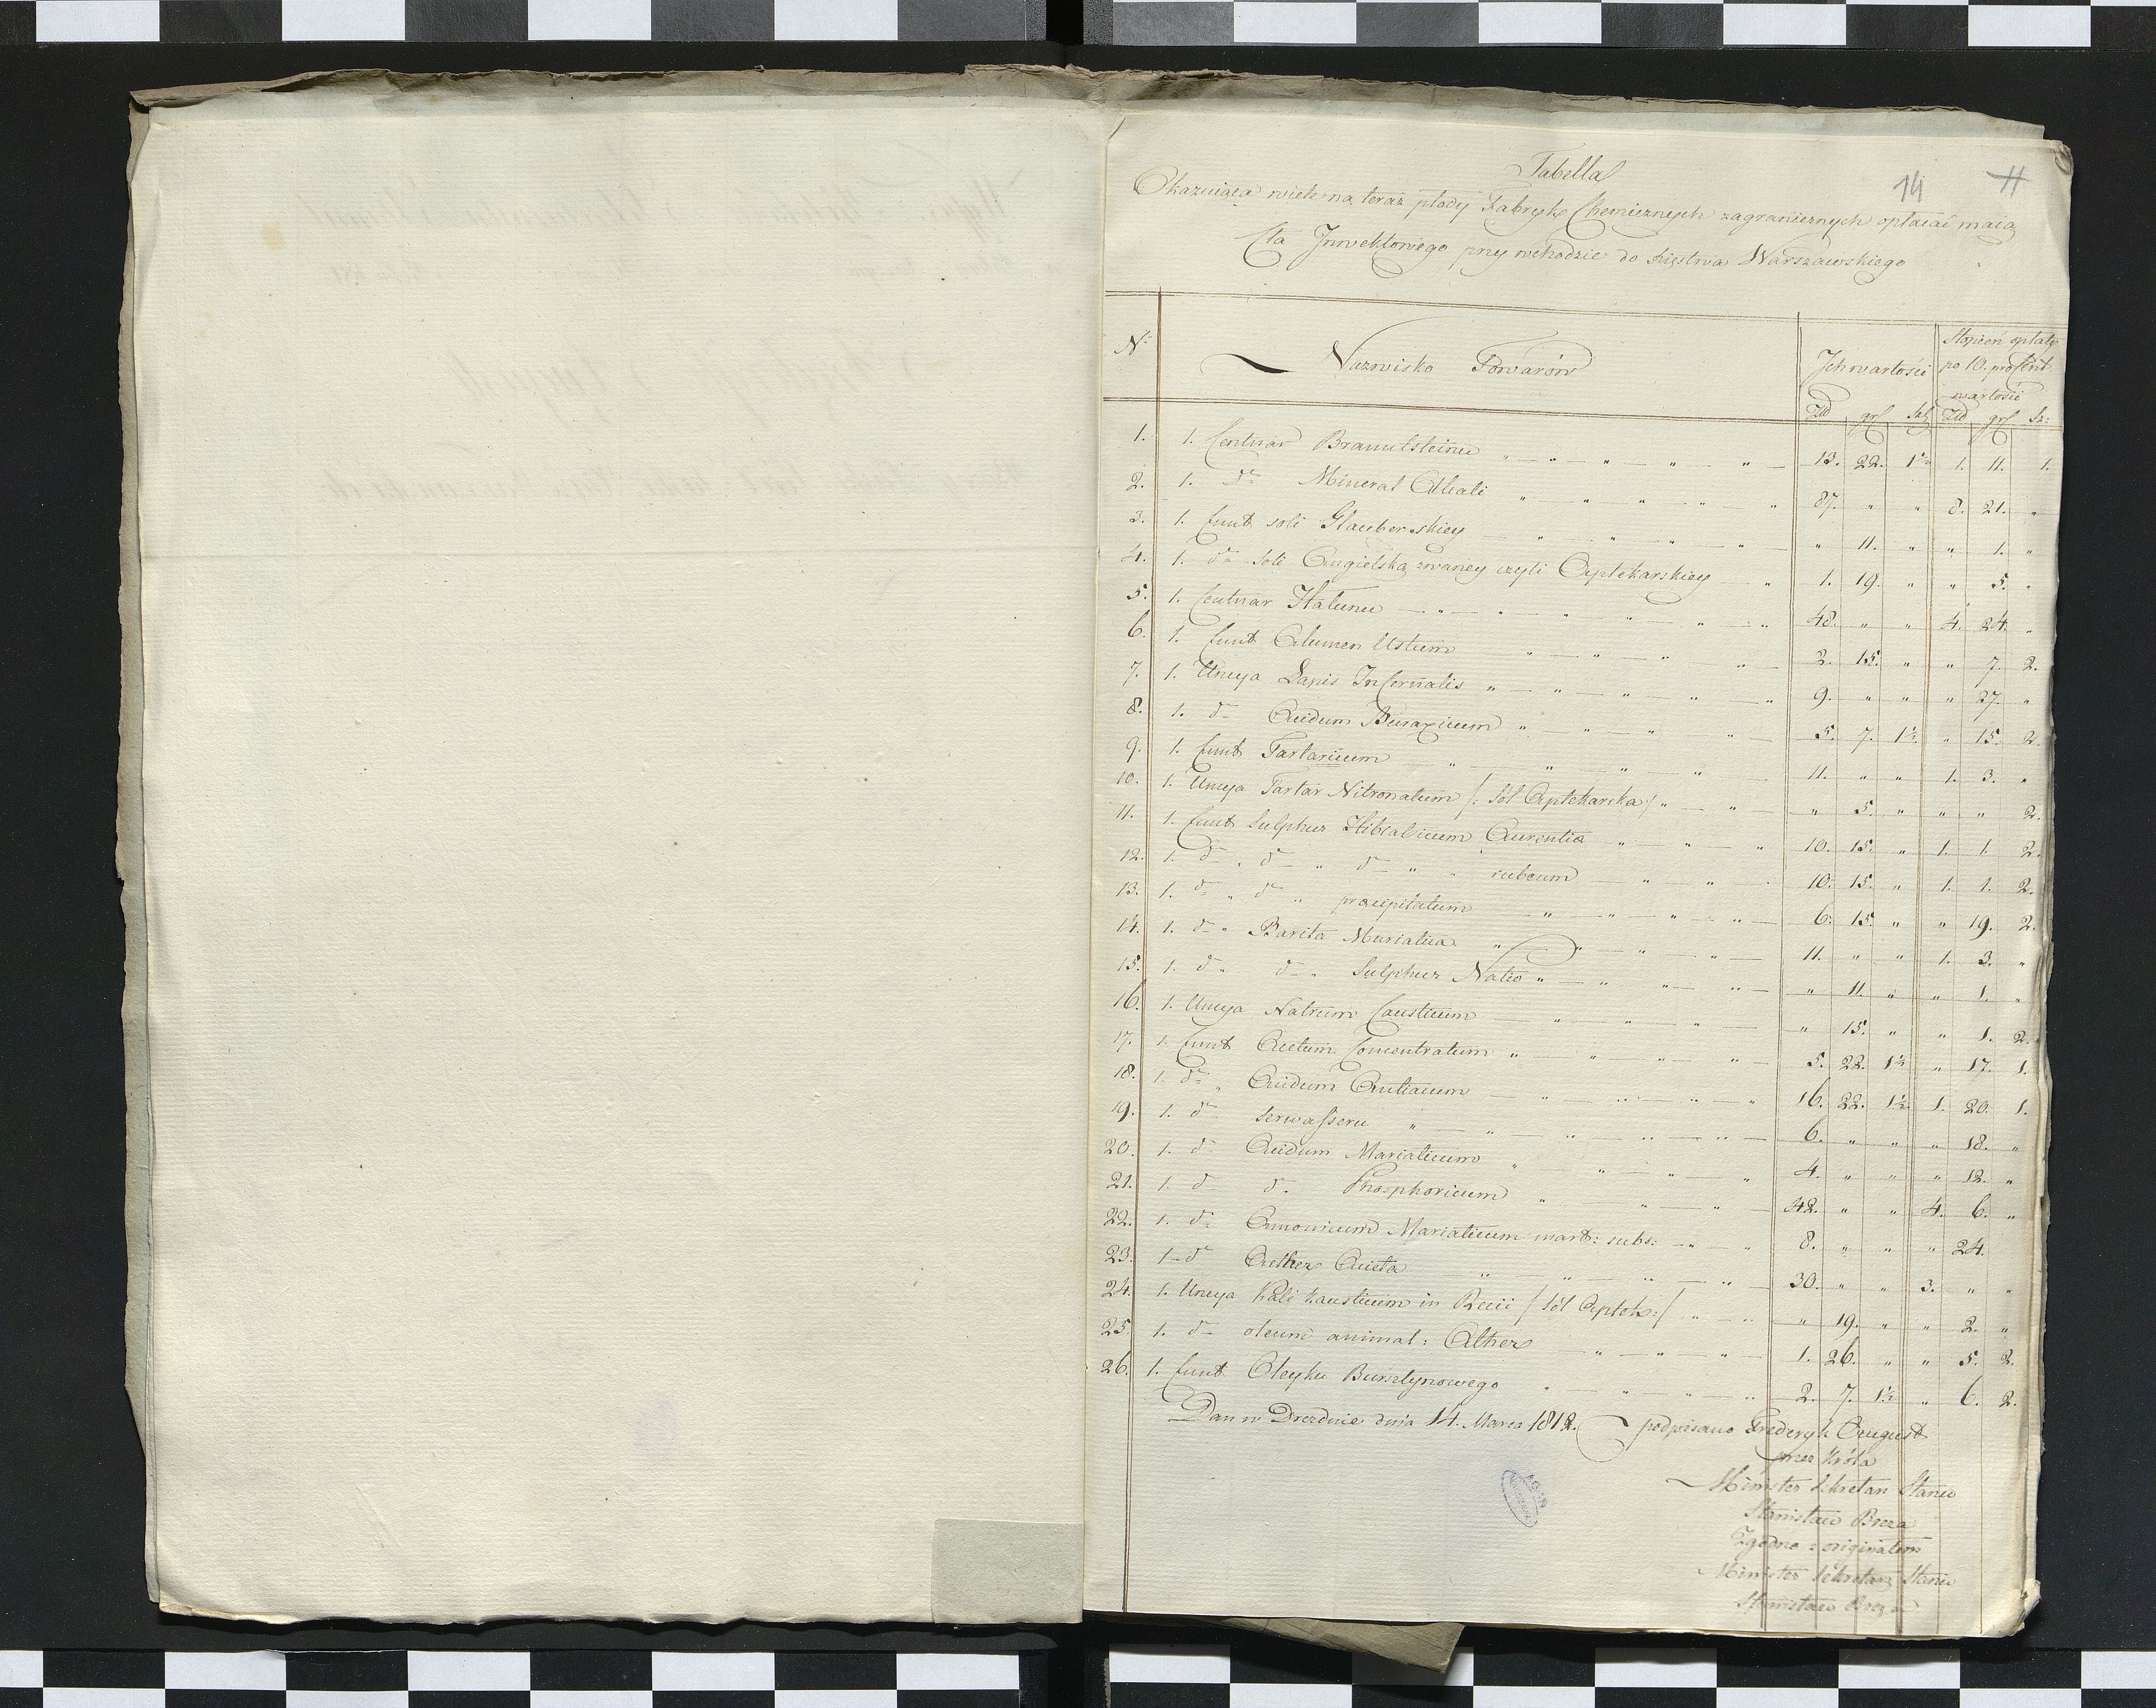 14 11
Tabella
Okazuiąca wiele na teraz płody Fabryk Chemicznych zagranicznych opłacać maią
Cła Inwektowego przy wchodzie do Xięstwa Warszawskiego
Nº Nazwisko Towarów Ich wartości Stopień opłaty po 10. procent wartości
Złł gr Sz Złł gr Sz:
1. 1. Centnar Braunsteinu 13. 22. 1½ 1. 11. 1.
2. 1. dº Mineral Alkali 87. " " 8. 21. "
3. 1. funt soli Glauberskiey " 11. " " 1. "
4. 1. dº Soli Angielską zwaney czyli Aptekarskiey 1. 19. " " 5. "
5. 1. Centnar Hałunu 48. " " 4. 24. "
6. 1. funt Alumen Ustum 2. 15. " " 7. 2.
7. 1. Uncya Lapis Infernalis 9. " " " 27. "
8. 1. dº Acidum Buraxicum 5. 7. 1½ " 15. 2.
9. 1. funt Tartaricum 11. " " 1. 3. "
10. 1. Uncya Tartar Nitronatum /: Sól Aptekarska :/ " 5. " " " 2.
11. 1. funt Sulphur Stibiaticum Aurentia 10. 15. " 1. 1. 2.
12. 1. dº " dº " dº " rubeum 10. 15. " 1. 1. 2.
13. 1. dº " dº " præcipitatum 6. 15. " " 19. 2.
14. 1. dº " Barita Muriatica 11. " " 1. 3. "
15. 1. dº " dº " Sulphur Natio " 11. " " 1. "
16. 1. Uncya Natrum Causticum " 15. " " 1. 2.
17. 1. funt Acetum Concentratum 5. 22. 1½ " 17. 1.
18. 1. dº " Acidum Aceticum 16. 22. 1½ 1. 20. 1.
19. 1. dº Serwasseru 6. " " " 18. "
20. 1. dº Acidum Mariaticum 4. " " " 12. "
21. 1. dº dº Phosphoricum 42. " " 4. 6. "
22. 1. dº Amonicum Mariaticum mart: subs: 8. " " " 24.
23. 1 dº Aether Aceta 30. " " 3. " "
24. 1. Uncya Kali kausticum in /Sól Aptek:/ " 19. " " 2. "
25. 1. dº oleum animal: Ather 1. 26. " " 5. 2.
26. 1. funt Oleyku Bursztynowego 2. 7. 1½ " 6. 2.
Dan w Dreznie dnia 14. Marca 1812. podpisano Frederyk August
przez Króla
Minister Sekretarz Stanu
Stanisław Breza
Zgodno z originałem
Minister Sekretarz Stanu
Stanisław Breza